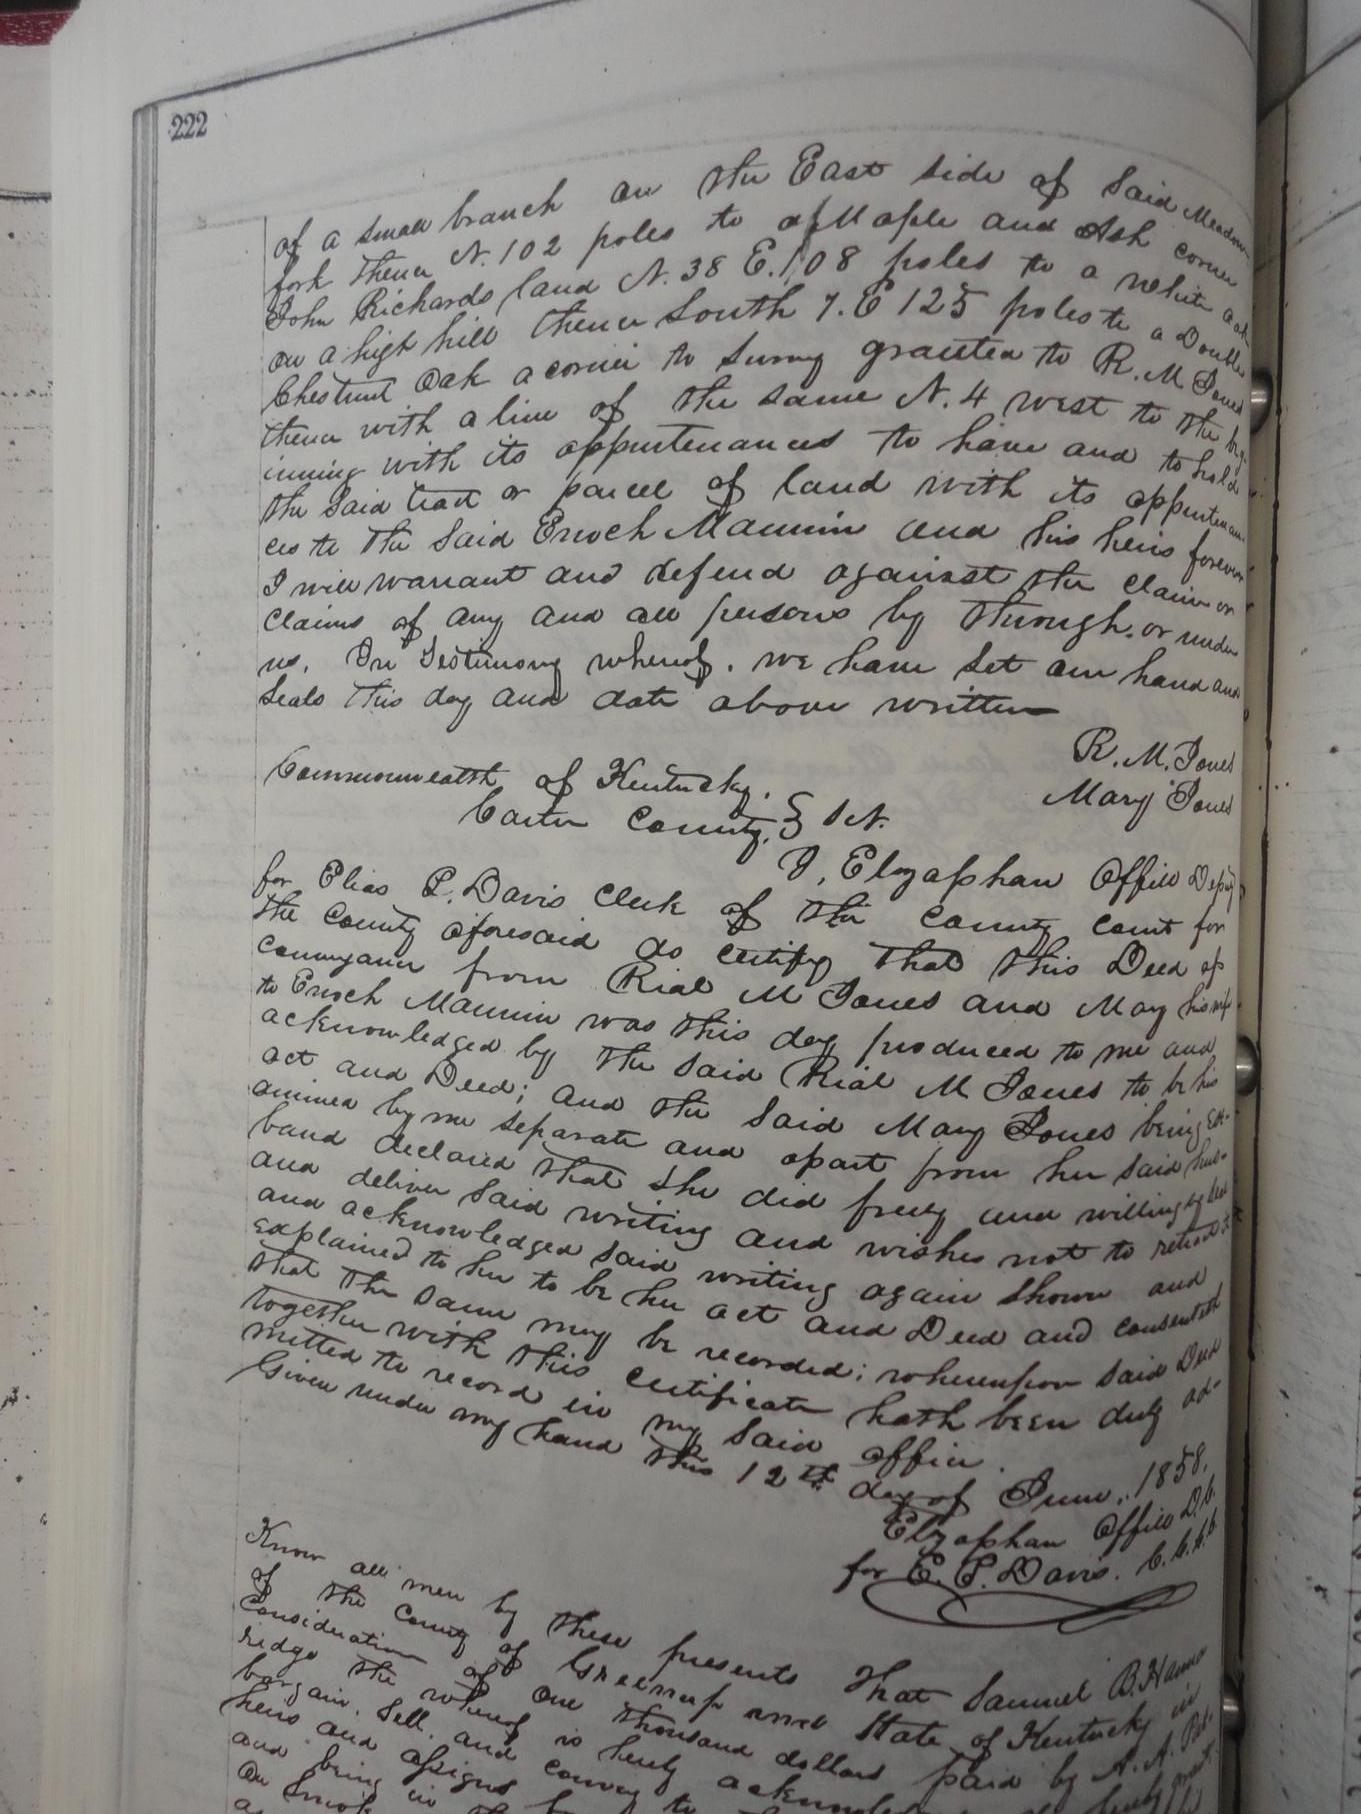 222
of a small branch on the East side of Said Meadow
fork thence N. 102 poles to a Maple and Ash corner
John Richards land N. 38 E. 108 poles to a white oak
on a high hill thence South 7. E 125 poles to a Double
Chestnut Oak a corner to Survey granted to R. M Jones
thence with a line of the same N. 4 west to the beg-
inning with its appurtenances to have and to hold
the said tract or parcel of land with its appurtenan-
ces to the Said Enoch Mannin and his heirs forever
I will warrant and defend against the claim or
claims of any and all persons by through, or under
us. In Testimony whereof. we have Set our hand and
Seals this day and date above written
R. M. Jones
Mary Jones
Commonwealth of Kentucky.
Carter County, } Sct.
I, Elzaphan Offill Deputy
for Elias P. Davis Clerk of the County court for
the County aforesaid do certify that this Deed of
conveyance from Rial M Jones and Mary his wife
to Enoch Mannin was this day produced to me and
acknowledged by the said Rial M Jones to be his
act and Deed; and the said Mary Jones being Ex-
amined by me separate and apart from her said hus-
band declared that she did freely and willingly seal
and deliver said writing and wishes not to retract it
and acknowledged said writing again shown and
explained to her to be her act and Deed and consented
that the same may be recorded; whereupon said Deed
together with this certificate hath been duly ad-
mitted to record in my said office.
Given under my hand this 12th day of June, 1858.
Elzaphan Offill D.C.
for E. P. Davis. C.C.C.C.
Know all men by these presents That Samuel B. Hanna
of the County of Greenup and State of Kentucky in
Consideration of One thousand dollars paid by A. A.
ledge the whereof is hereby
bargain, Sell, and convey to
heirs and assigns
and being in the
on Smok